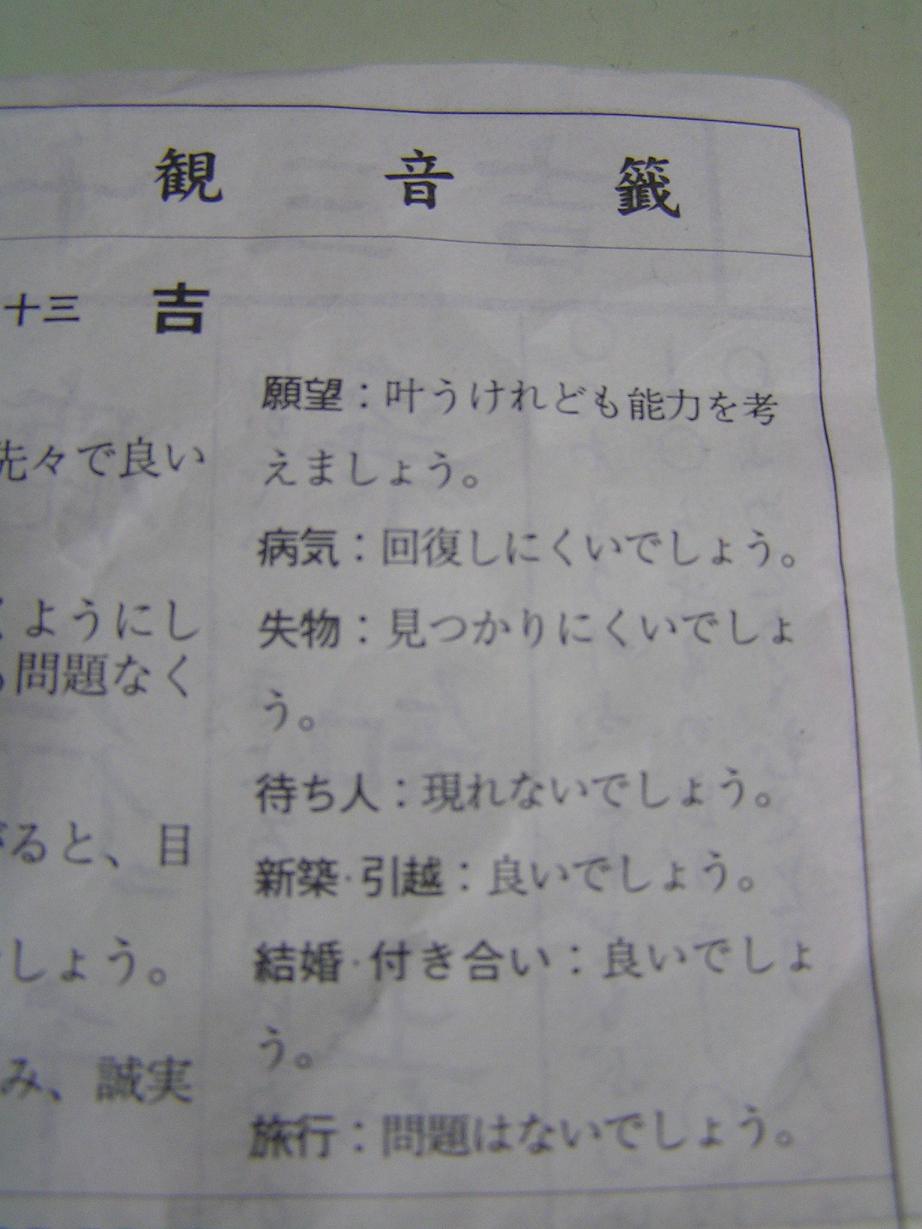 観音籤
十三 吉
先々で良い
ようにし
問題なく
ると、目
しょう。
み、誠実
願望：叶うけれども能力を考
えましょう。
病気：回復しにくいでしょう。
失物：見つかりにくいでしょ
う。
待ち人：現れないでしょう。
新築·引越：良いでしょう。
結婚·付き合い：良いでしょ
う。
旅行：問題はないでしょう。